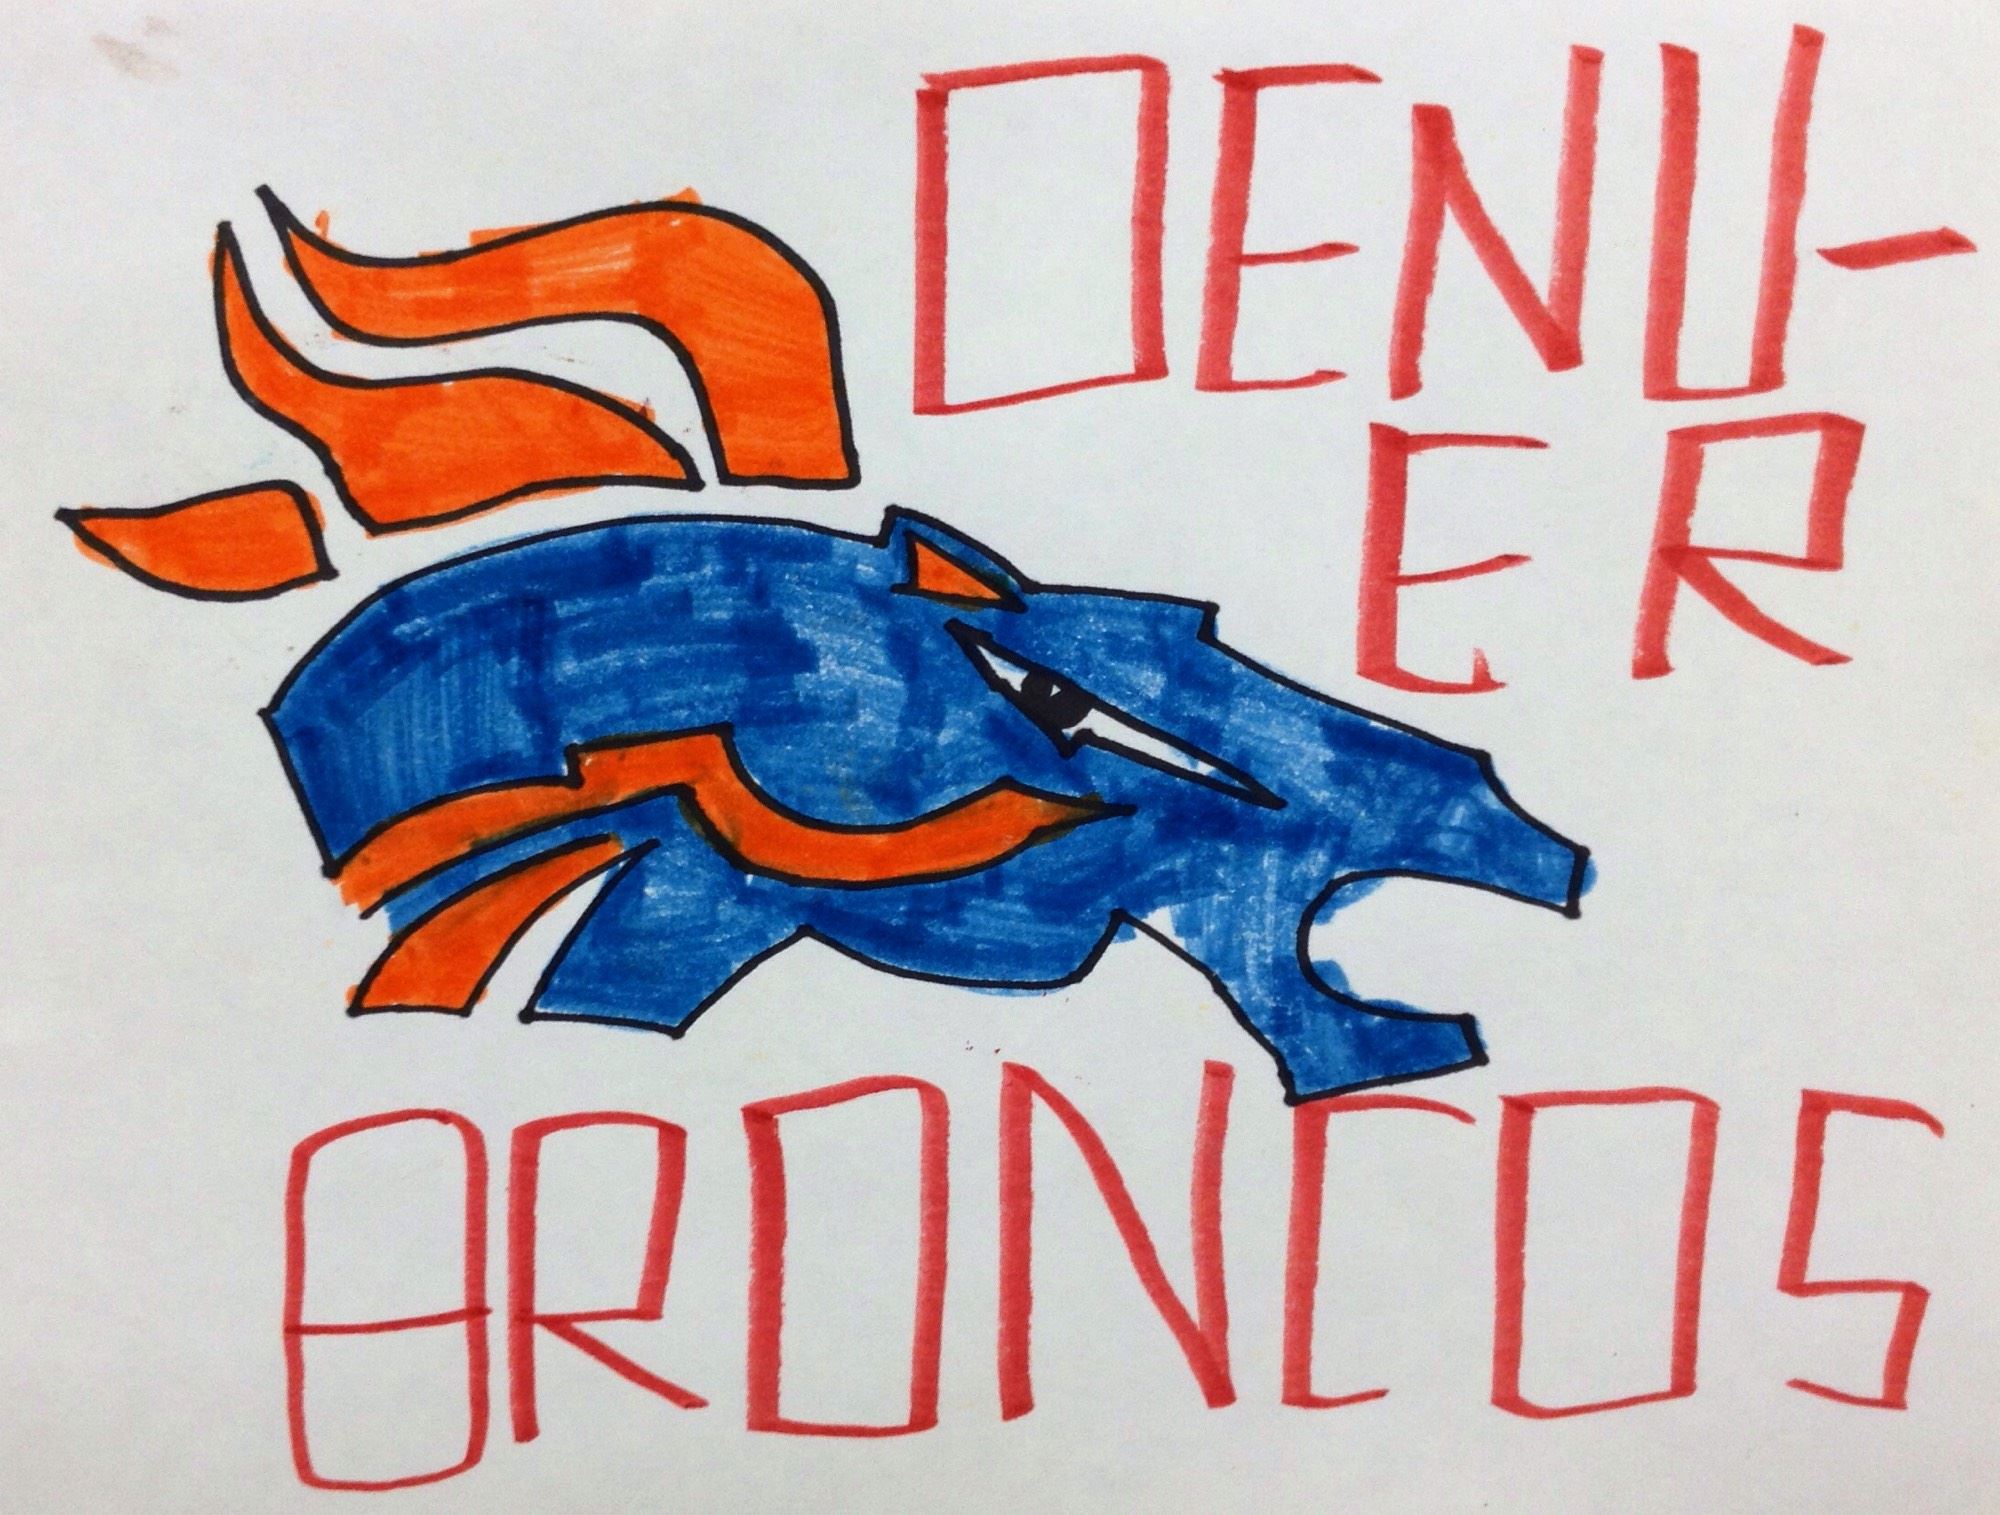 DENV-
ER
BRONCOS